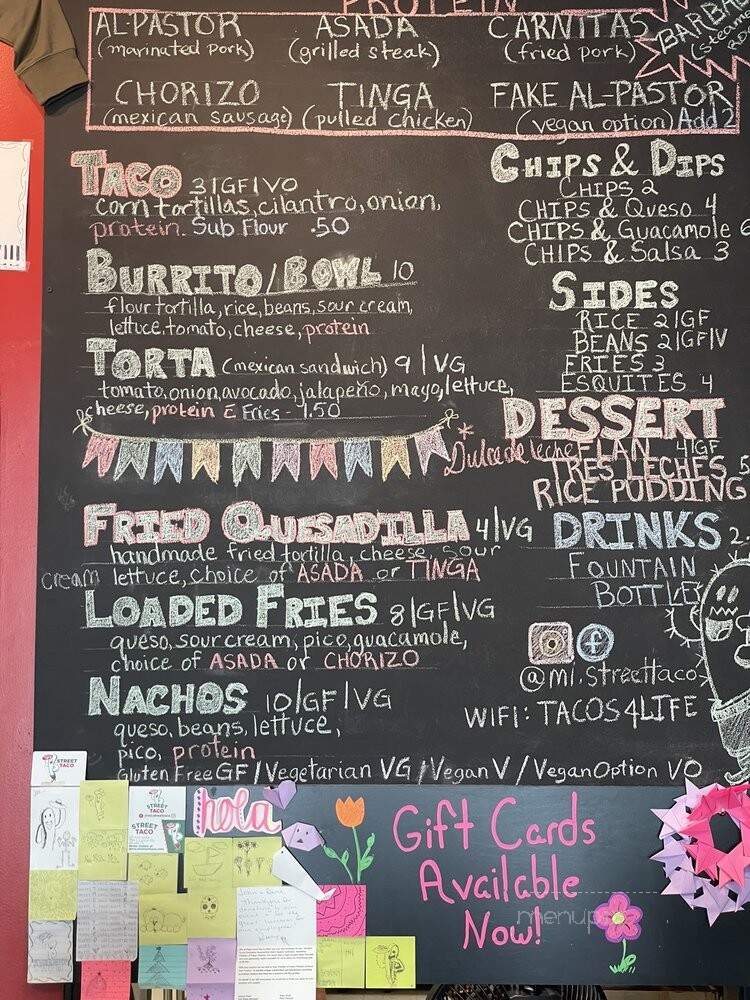 PROTEIN
AL-PASTOR
(marinated pork)
ASADA
(grilled steak)
CARNITAS
(fried pork)
CHORIZO
(mexican sausage)
TINGA
(pulled chicken)
FAKE AL-PASTOR
(vegan option) Add 2
TACO 3|GF|VO
corn tortillas, cilantro, onion,
protein. Sub Flour .50
BURRITO/BOWL 10
flour tortilla, rice, beans, sour cream,
lettuce, tomato, cheese, protein
TORTA (mexican sandwich) 9|VG
tomato, onion, avocado, jalapeño, mayo, lettuce,
cheese, protein & Fries - 1.50
FRIED QUESADILLA 4/VG
handmade fried tortilla, cheese, sour
cream lettuce, choice of ASADA or TINGA
LOADED FRIES 8|GF|VG
queso, sour cream, pico, guacamole,
choice of ASADA or CHORIZO
NACHOS 10/GF/VG
queso, beans, lettuce,
pico, protein
Gluten Free GF/Vegetarian VG/Vegan V/Vegan Option VO
CHIPS & DIPS
CHIPS 2
CHIPS & QUESO 4
CHIPS & GUACAMOLE 6
CHIPS & SALSA 3
SIDES
RICE 2|GF
BEANS 2|GF|V
FRIES 3
ESQUITES 4
DESSERT
*Dulce de leche FLAN 4|GF
TRES LECHES 5
RICE PUDDING
DRINKS 2.
FOUNTAIN
BOTTLE
@mi.streettaco
WIFI: TACOS4LIFE
STREET
TACO
STREET
TACO
hola
Gift Cards
Available
Now!
menupix